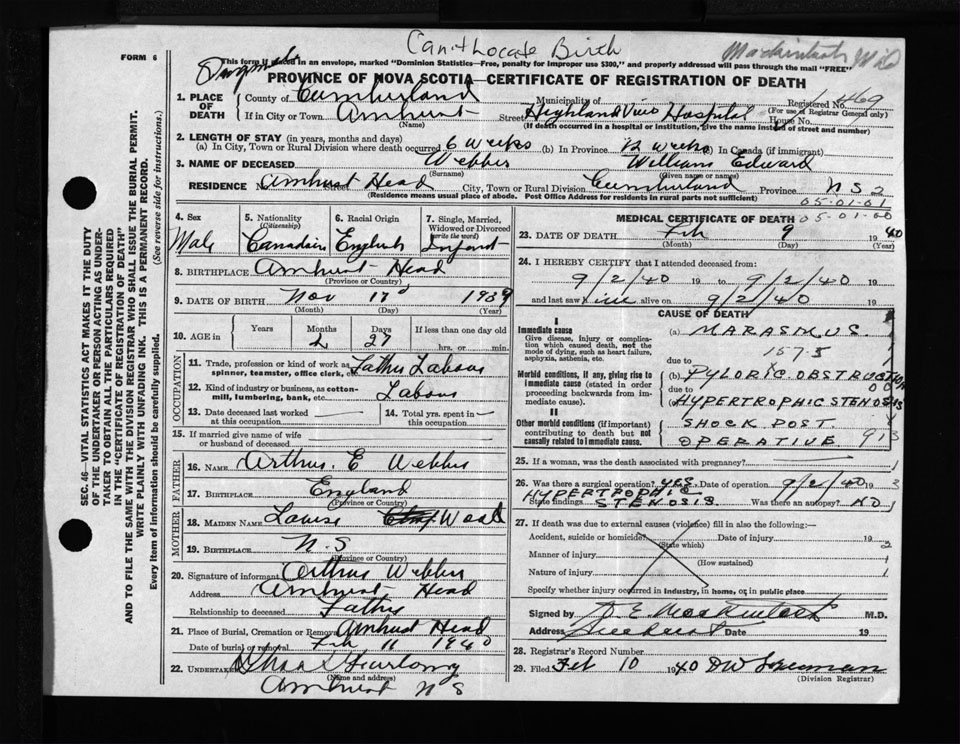 Can't Locate Birth
FORM 6
This form if placed in an envelope, marked "Dominion Statistics—Free, penalty for improper use $300," and properly addressed will pass through the mail "FREE"
PROVINCE OF NOVA SCOTIA—CERTIFICATE OF REGISTRATION OF DEATH
1. PLACE OF DEATH
County of Cumberland Municipality of Registered No. 1469
(For use of Registrar General only)
If in City or Town Amherst Street Highland View Hospital House No.
(Name) (If death occurred in a hospital or institution, give the name instead of street and number)
2. LENGTH OF STAY (in years, months and days)
(a) In City, Town or Rural Division where death occurred 6 weeks (b) In Province 12 weeks (c) In Canada (if immigrant)
3. NAME OF DECEASED Webber William Edward
(Surname) (Given name or names)
RESIDENCE No. Amherst Head City, Town or Rural Division Cumberland Province N S 2
(Residence means usual place of abode. Post Office Address for residents in rural parts not sufficient)
05-01-01
05-01-00
SEC. 46—VITAL STATISTICS ACT MAKES IT THE DUTY
OF THE UNDERTAKER OR PERSON ACTING AS UNDER-
TAKER TO OBTAIN ALL THE PARTICULARS REQUIRED
IN THE "CERTIFICATE OF REGISTRATION OF DEATH"
AND TO FILE THE SAME WITH THE DIVISION REGISTRAR WHO SHALL ISSUE THE BURIAL PERMIT.
WRITE PLAINLY WITH UNFADING INK. THIS IS A PERMANENT RECORD.
Every item of information should be carefully supplied. (See reverse side for instructions.)
4. Sex 5. Nationality (Citizenship) 6. Racial Origin 7. Single, Married, Widowed or Divorced (write the word)
Male Canadian English Infant
8. BIRTHPLACE Amherst Head
(Province or Country)
9. DATE OF BIRTH Nov 17 1939
(Month) (Day) (Year)
10. AGE in Years Months Days If less than one day old
2 27 hrs. or min.
OCCUPATION
11. Trade, profession or kind of work as spinner, teamster, office clerk, etc. Father Labour
12. Kind of industry or business, as cotton-mill, lumbering, bank, etc. Labour
13. Date deceased last worked at this occupation 14. Total yrs. spent in this occupation
15. If married give name of wife or husband of deceased
FATHER
16. NAME Arthur. E Webber
17. BIRTHPLACE England
MOTHER
18. MAIDEN NAME Louise Wood
19. BIRTHPLACE N. S
(Province or Country)
20. Signature of informant Arthur Webber
Address Amherst Head
Relationship to deceased Father
21. Place of Burial, Cremation or Removal Amherst Head
Date of burial or removal Feb 11 1940
22. UNDERTAKER
(Name and address)
Amherst N S
MEDICAL CERTIFICATE OF DEATH
23. DATE OF DEATH Feb 9 1940
(Month) (Day) (Year)
24. I HEREBY CERTIFY that I attended deceased from:
9/2/40 19 to 9/2/40 19
and last saw him alive on 9/2/40 19
CAUSE OF DEATH
I
Immediate cause (a) MARASMUS.
Give disease, injury or complication which caused death, not the mode of dying, such as heart failure, asphyxia, asthenia, etc.
157.5
due to
Morbid conditions, if any, giving rise to immediate cause (stated in order proceeding backwards from immediate cause).
(b) PYLORIC. OBSTRUCTION
due to
HYPERTROPHIC STENOSIS
II
Other morbid conditions (if important) contributing to death but not causally related to immediate cause.
SHOCK POST. OPERATIVE
25. If a woman, was the death associated with pregnancy?
26. Was there a surgical operation? YES Date of operation 9/2/40 19
State findings HYPERTROPHIC STENOSIS. Was there an autopsy? NO
27. If death was due to external causes (violence) fill in also the following:—
Accident, suicide or homicide? Date of injury 19
(State which)
Manner of injury
(How sustained)
Nature of injury
Specify whether injury occurred in industry, in home, or in public place
Signed by M.D.
Address Amherst Date 19
28. Registrar's Record Number
29. Filed Feb 10 1940
(Division Registrar)